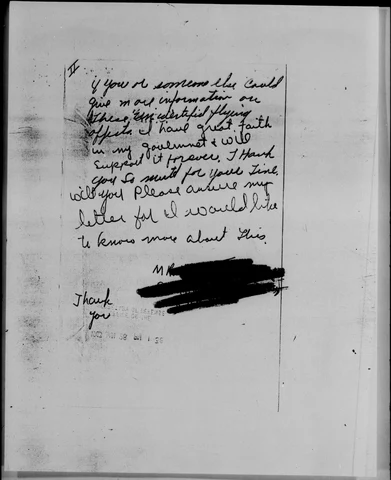 II
if you or someone else could
give more information on
these, unidentifid flying
offects I have great faith
in my governmet & will
Support it forever. Thank
you So much for yours time,
will you Please answe my
letter for I would like
to know more about this.
M
Thank
you